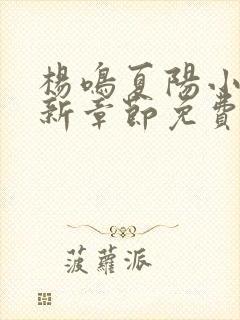 楊鳴夏陽小
新章節免費
菠蘿派